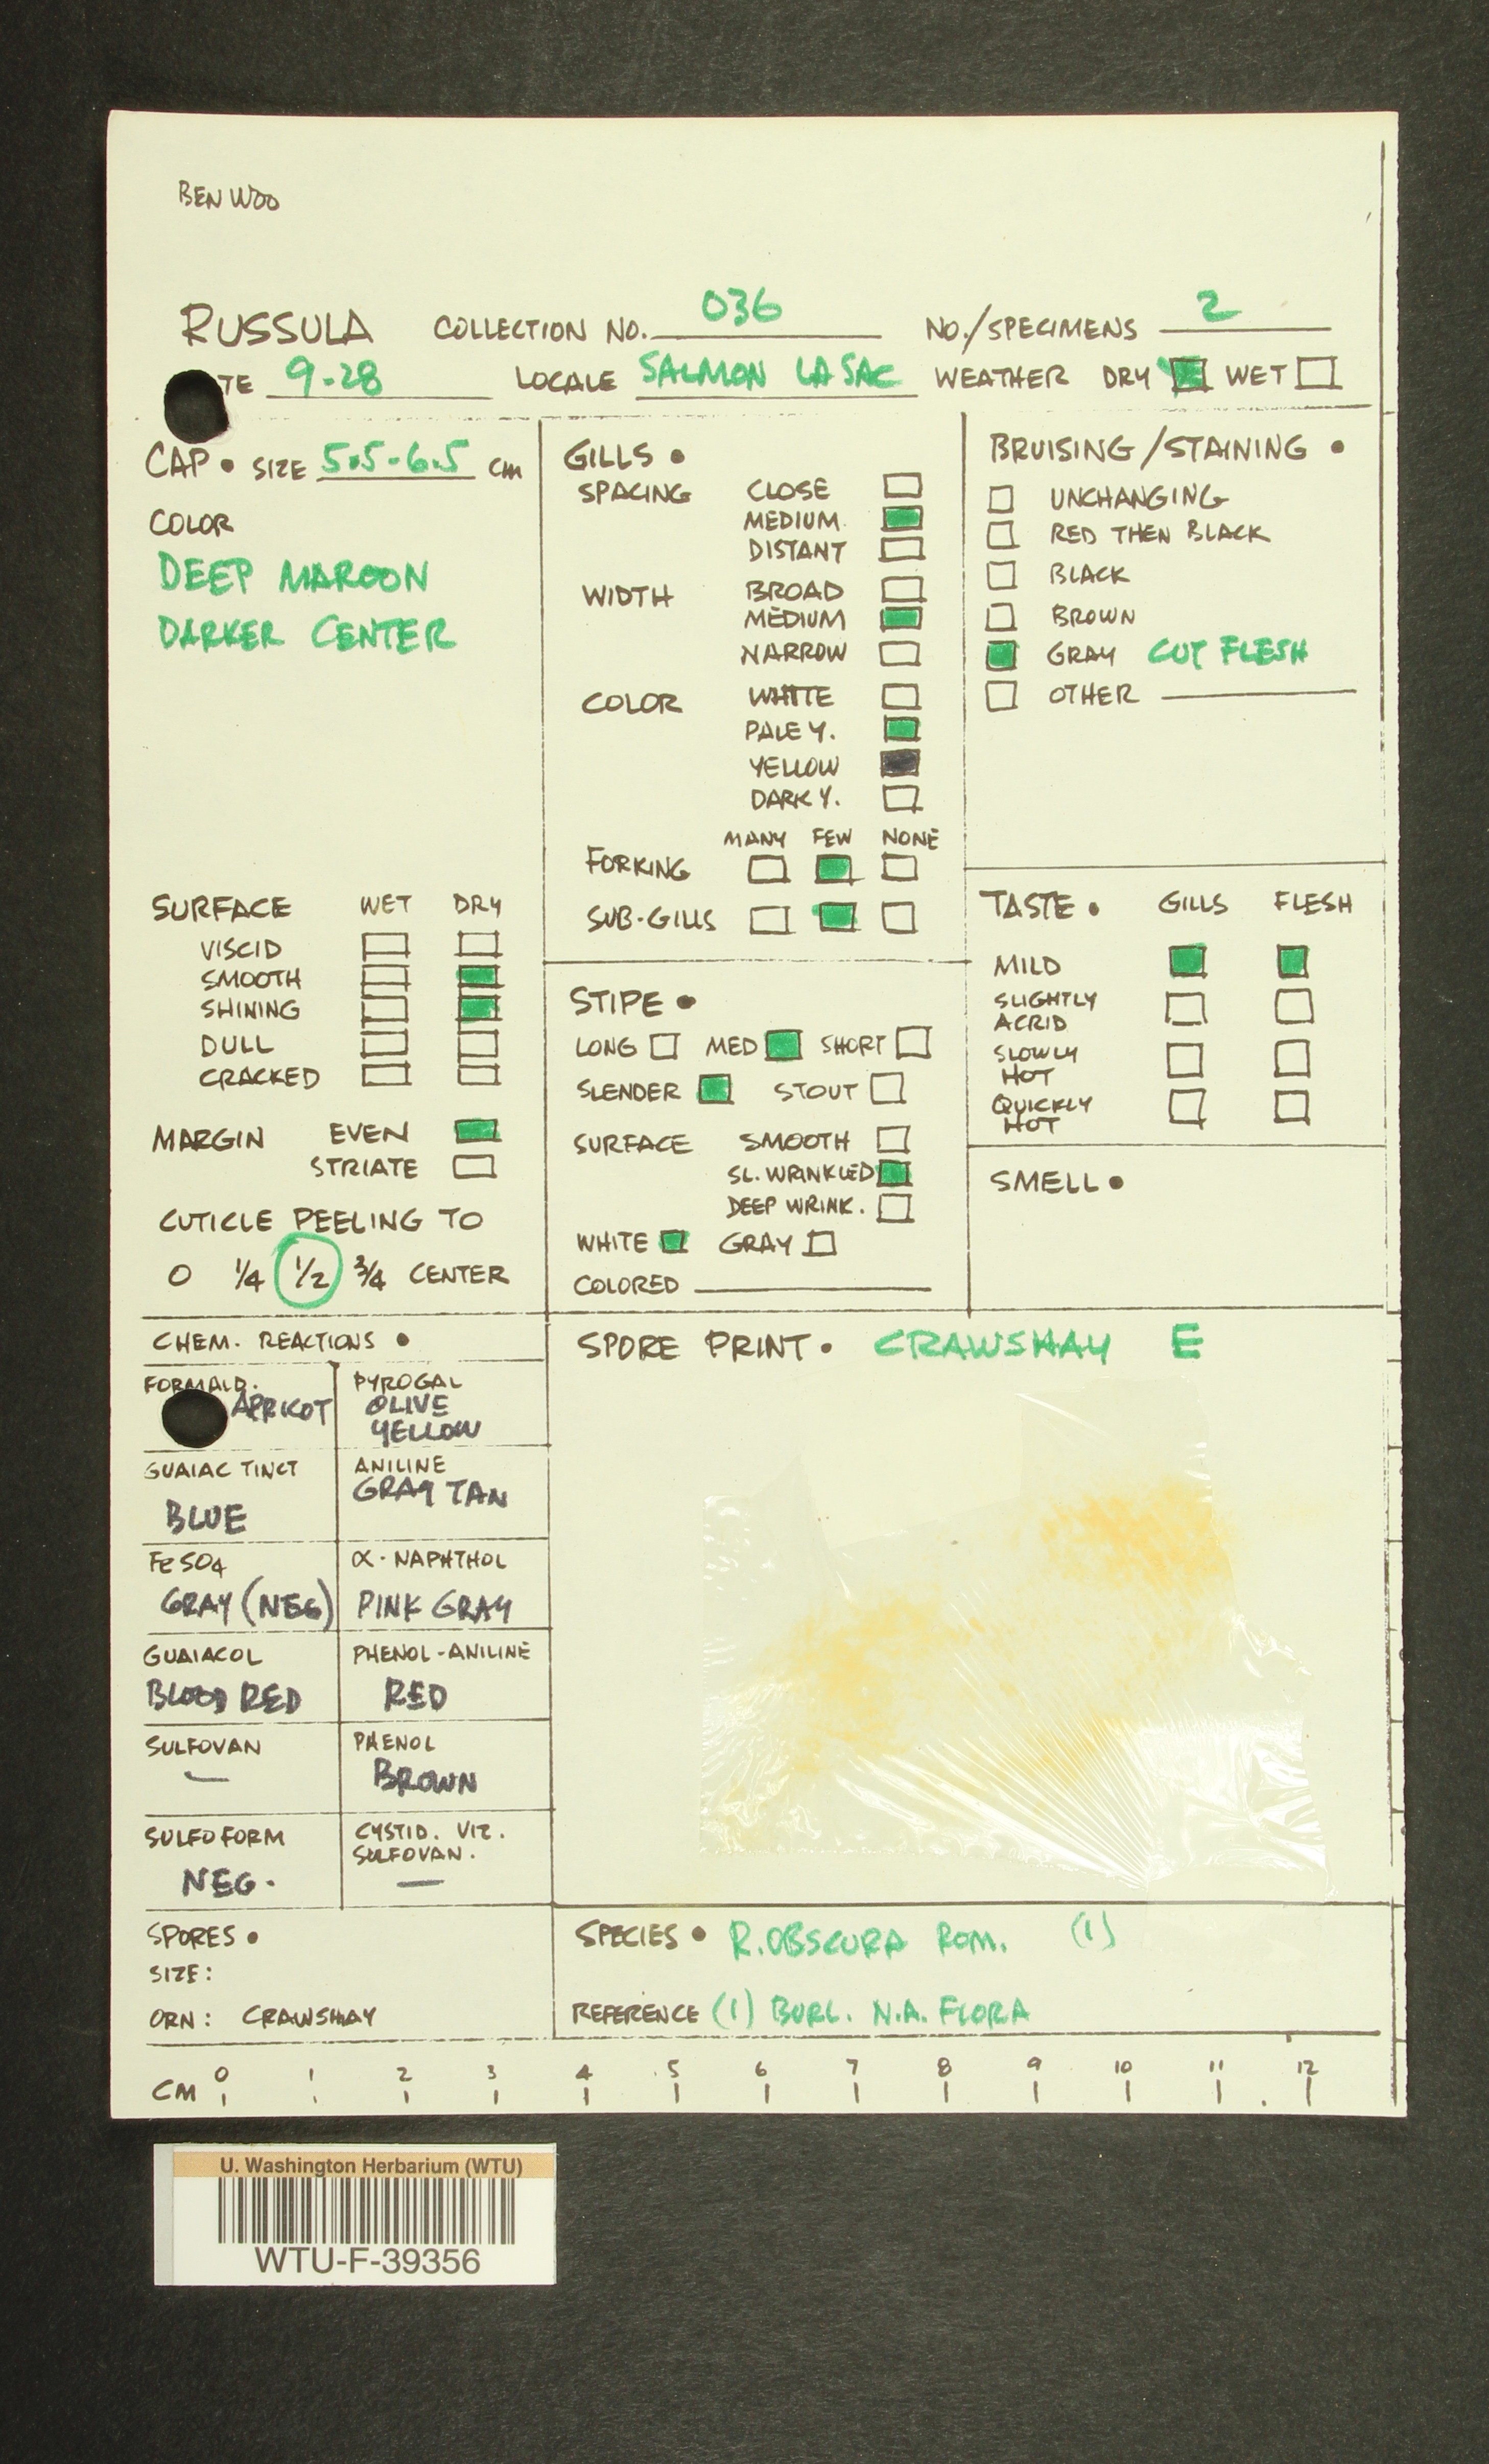 BEN WOO
RUSSULA COLLECTION NO. 036 NO./SPECIMENS 2
TE 9-28 LOCALE SALMON LA SAC WEATHER DRY WET
CAP • SIZE 5.5-6.5 CM
COLOR
DEEP MAROON
DARKER CENTER
SURFACE WET DRY
VISCID
SMOOTH
SHINING
DULL
CRACKED
MARGIN EVEN
STRIATE
CUTICLE PEELING TO
0 1/4 1/2 3/4 CENTER
GILLS •
SPACING CLOSE
MEDIUM
DISTANT
WIDTH BROAD
MEDIUM
NARROW
COLOR WHITE
PALE Y.
YELLOW
DARK Y.
MANY FEW NONE
FORKING
SUB-GILLS
STIPE •
LONG MED SHORT
SLENDER STOUT
SURFACE SMOOTH
SL. WRINKLED
DEEP WRINK.
WHITE GRAY
COLORED
BRUISING/STAINING •
UNCHANGING
RED THEN BLACK
BLACK
BROWN
GRAY CUT FLESH
OTHER
TASTE • GILLS FLESH
MILD
SLIGHTLY
ACRID
SLOWLY
HOT
QUICKLY
HOT
SMELL •
CHEM. REACTIONS •
FORMALD.
APRICOT
PYROGAL
OLIVE
YELLOW
GUAIAC TINCT
BLUE
ANILINE
GRAY TAN
FeSO4
GRAY (NEG)
α-NAPHTHOL
PINK GRAY
GUAIACOL
BLOOD RED
PHENOL-ANILINE
RED
SULFOVAN
—
PHENOL
BROWN
SULFOFORM
NEG.
CYSTID. VIZ.
SULFOVAN.
—
SPORE PRINT • CRAWSHAY E
SPORES •
SIZE:
ORN: CRAWSHAY
SPECIES • R. OBSCURA ROM. (1)
REFERENCE (1) BURL. N.A. FLORA
CM 0 1 2 3 4 5 6 7 8 9 10 11 12
U. Washington Herbarium (WTU)
WTU-F-39356